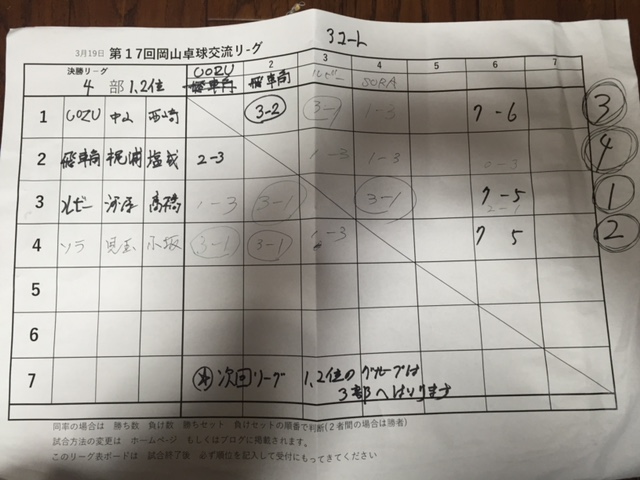 3コート
3月19日 第17回岡山卓球交流リーグ
決勝リーグ
4 部 1,2位
1 2 3 4 5 6 7
UOZU 飛車角 ルビー SORA
飛車角
1 UOZU 中山 西崎 3-2 3-1 1-3 7-6 3
2 飛車角 梶浦 塩成 2-3 1-3 1-3 0-3 4
3 ルビー 高橋 1-3 3-1 3-1 7-5 1
2-1
4 ソラ 小坂 3-1 3-1 1-3 7 5 2
5
6
7 次回リーグ 1,2位のグループは
3部へはいります
同率の場合は 勝ち数 負け数 勝ちセット 負けセットの順番で判断(2者間の場合は勝者)
試合方法の変更は ホームページ もしくはブログに掲載されます。
このリーグ表ボードは 試合終了後 必ず順位を記入して受付にもってきてください